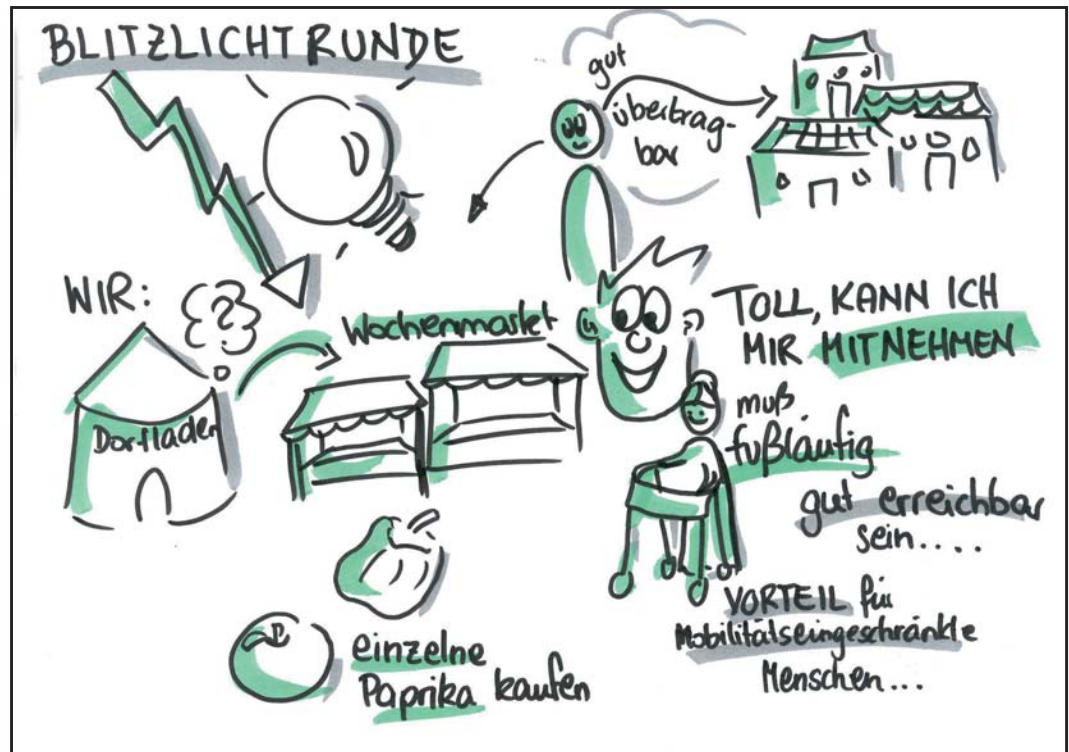 BLITZLICHTRUNDE
gut
übertrag-
bar
WIR:
?
Dorfladen
Wochenmarkt
TOLL, KANN ICH
MIR MITNEHMEN
muß
fußläufig
gut erreichbar
sein....
VORTEIL für
Mobilitätseingeschränkte
Menschen...
einzelne
Paprika kaufen